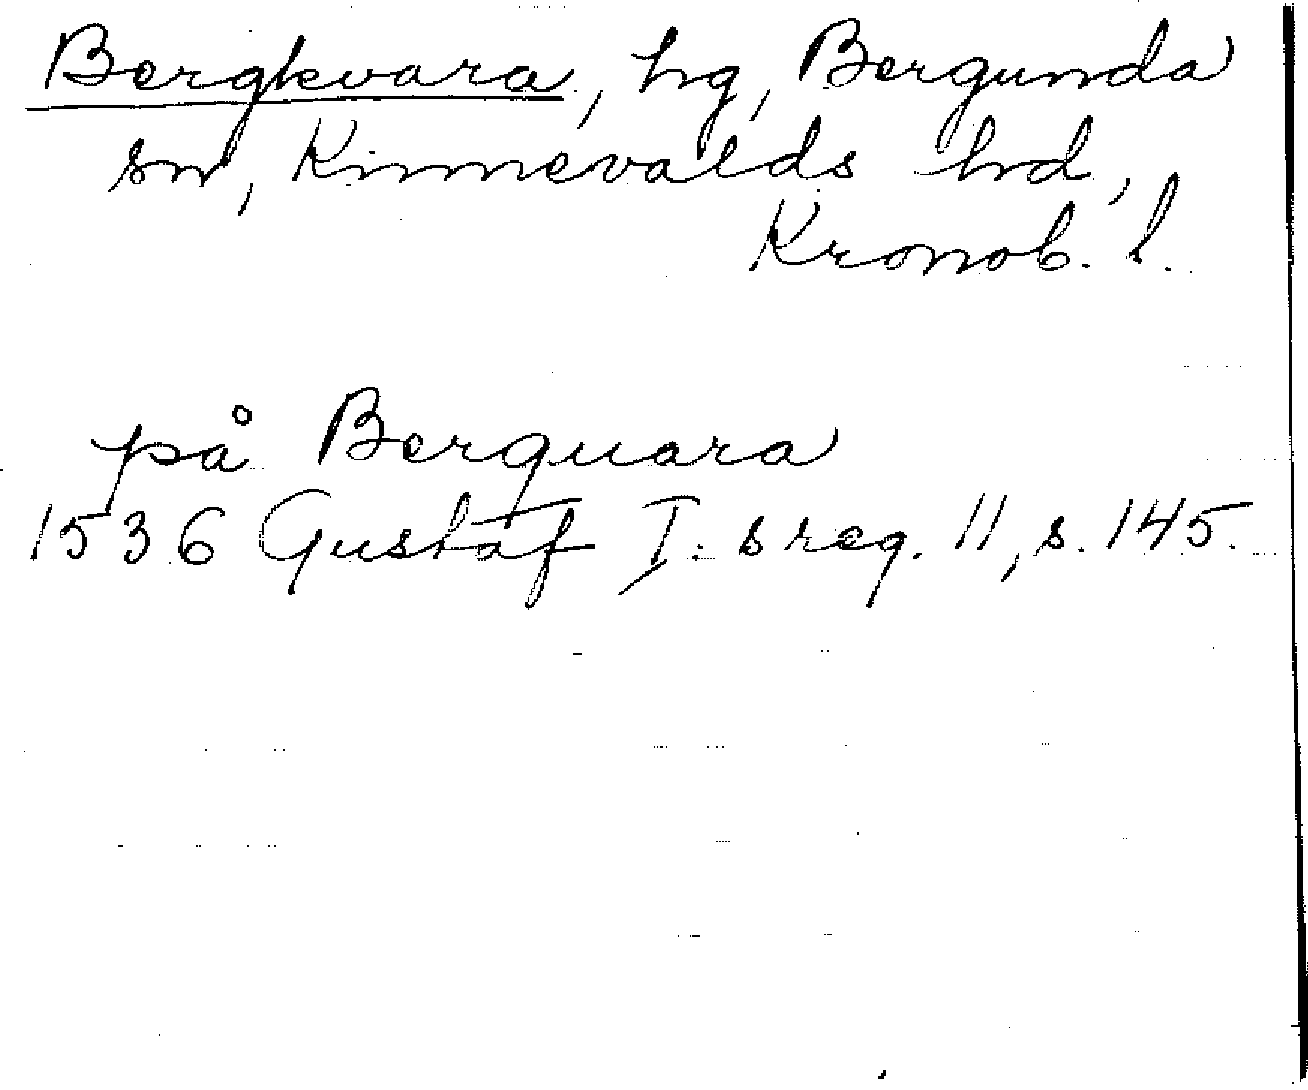 Bergkvara, hg, Bergunda
sn, Kinnevalds hd,
Kronob. l.
på Berquara
1536 Gustaf I:s reg. 11, s. 145.